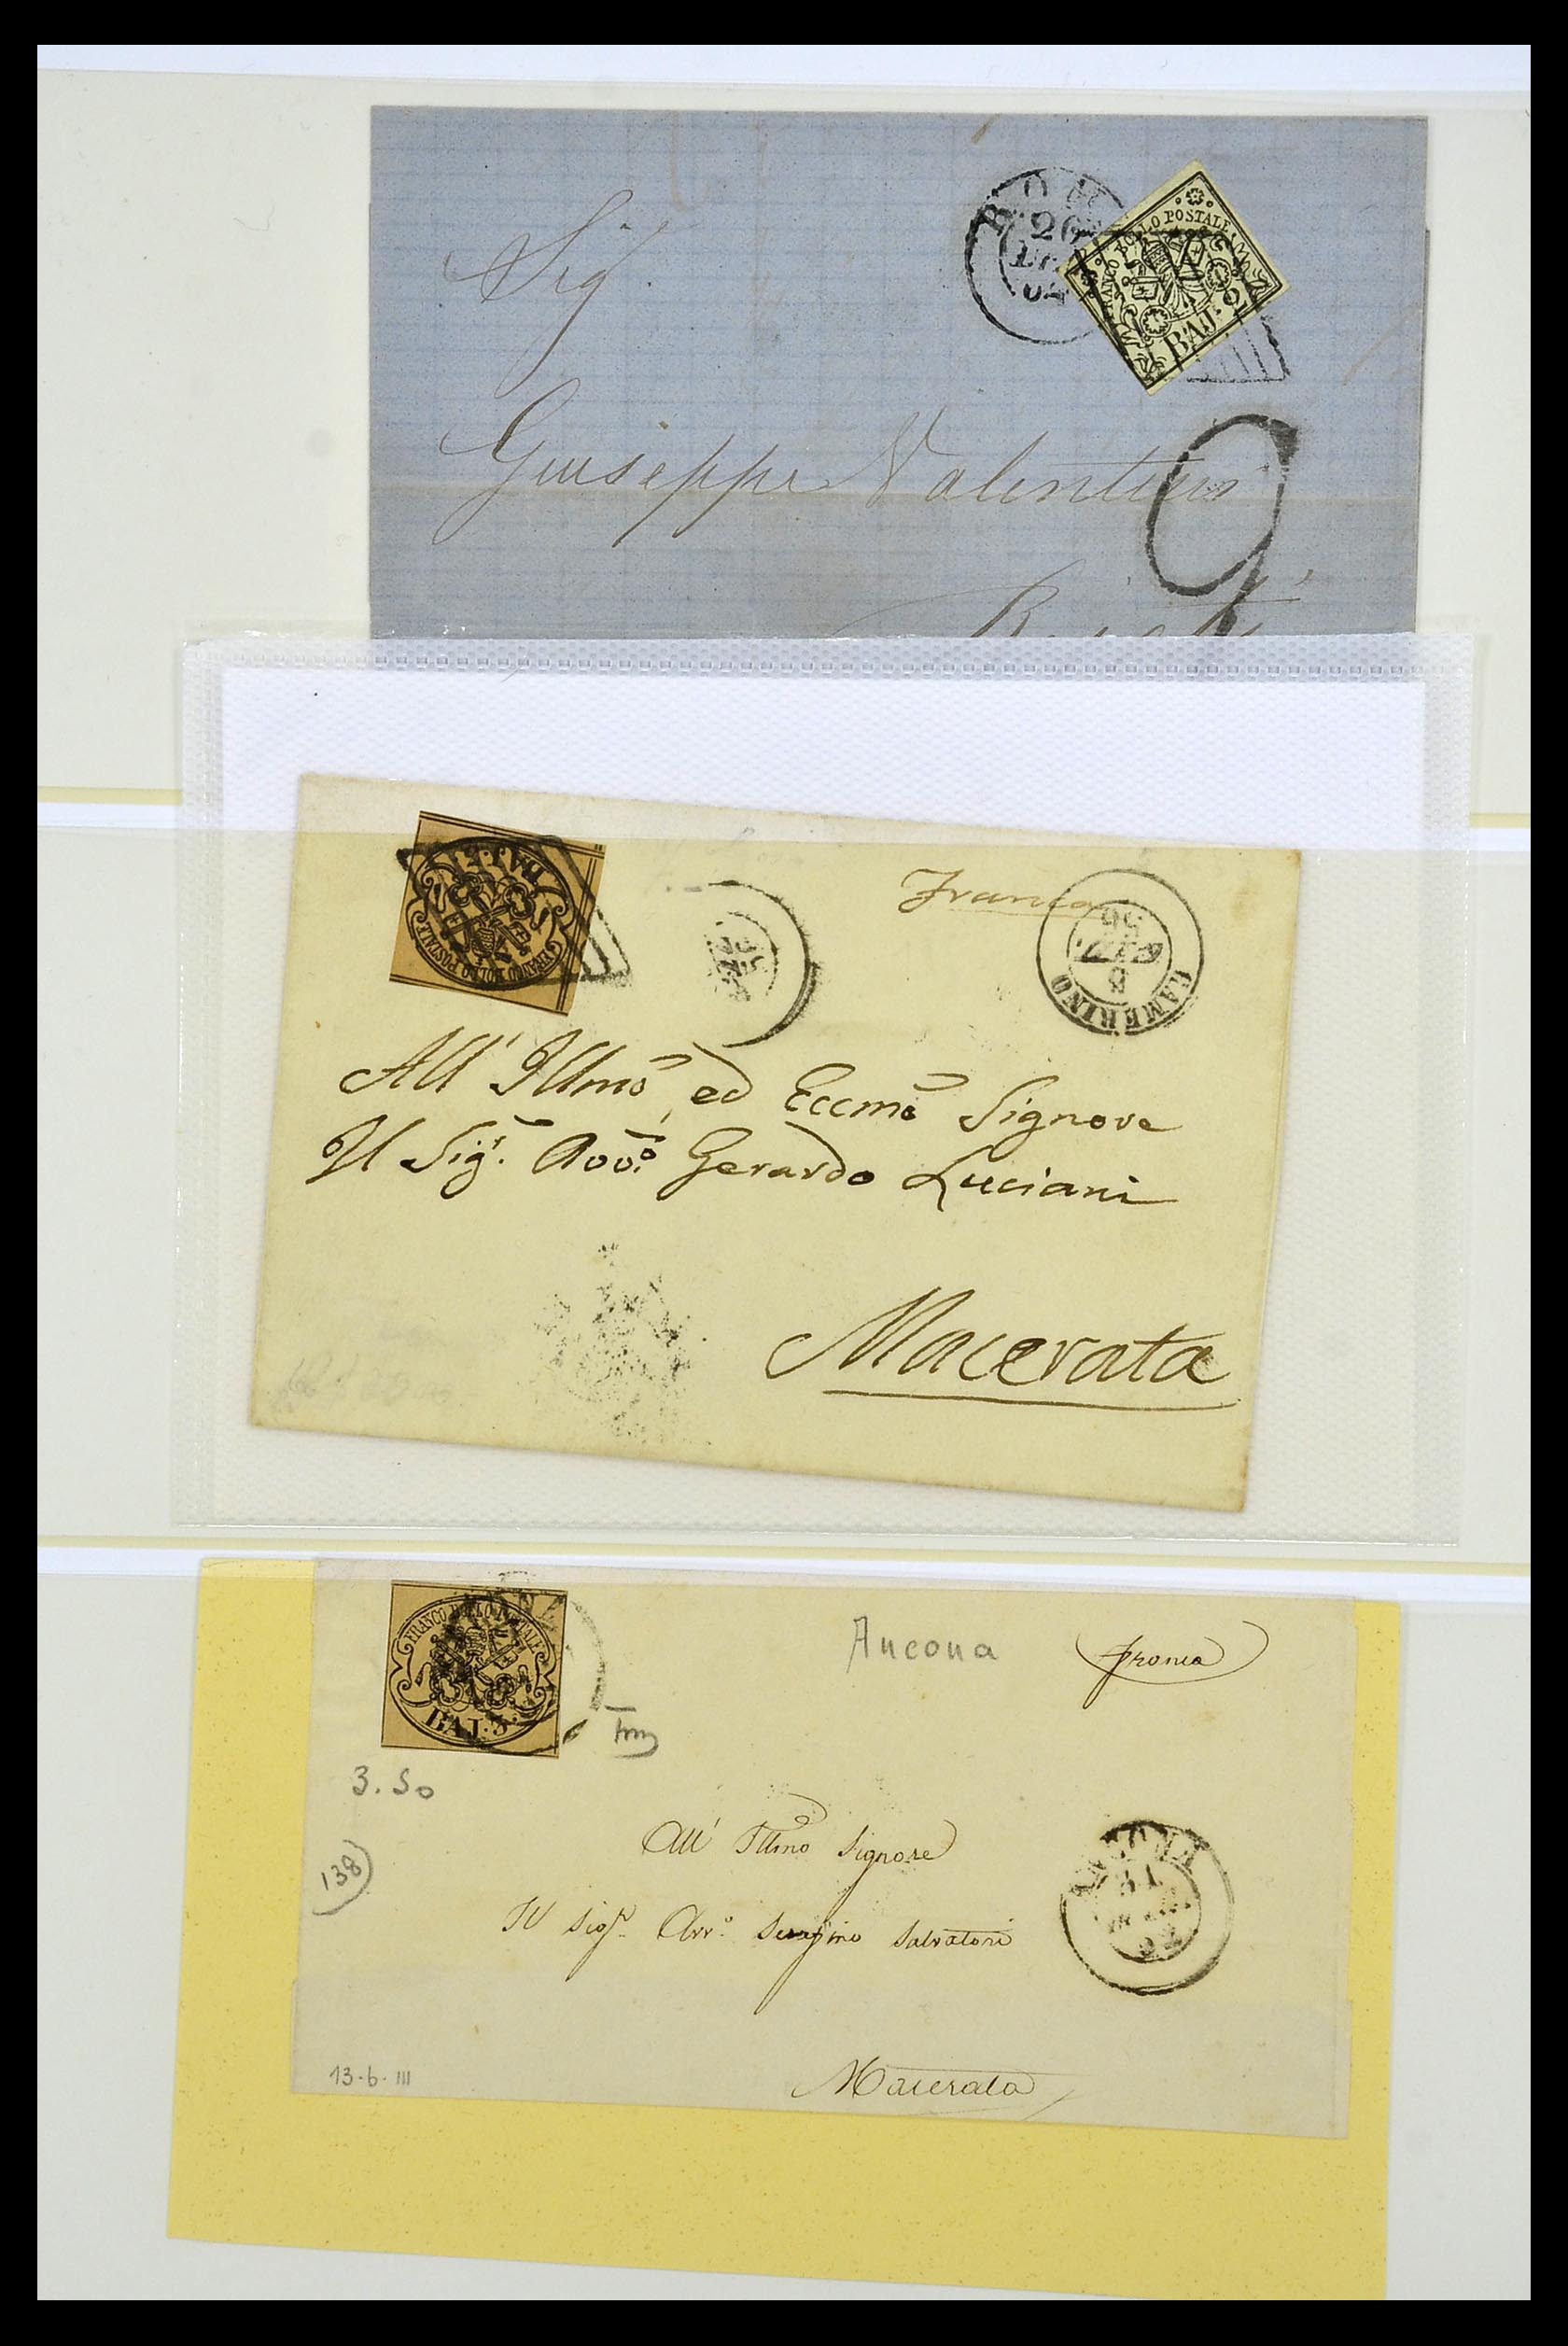 Sig.
Giuseppe Valentini
9
ROMA
26
62
FRANCO BOLLO POSTALE
BAJ. 2
Franca
CAMERINO
8
56
BAJ.
FRANCO BOLLO POSTALE
All' Illmo ed Eccmo Signore
Il Sigr. Avvo. Gerardo Luciani
Macerata
FRANCO BOLLO POSTALE
BAJ. 3.
Ancona
franca
3.50
138
All' Illmo Signore
Il Sigr. Avv.o Serafino Salvatori
ANCONA
31
52
Macerata
13-6-III